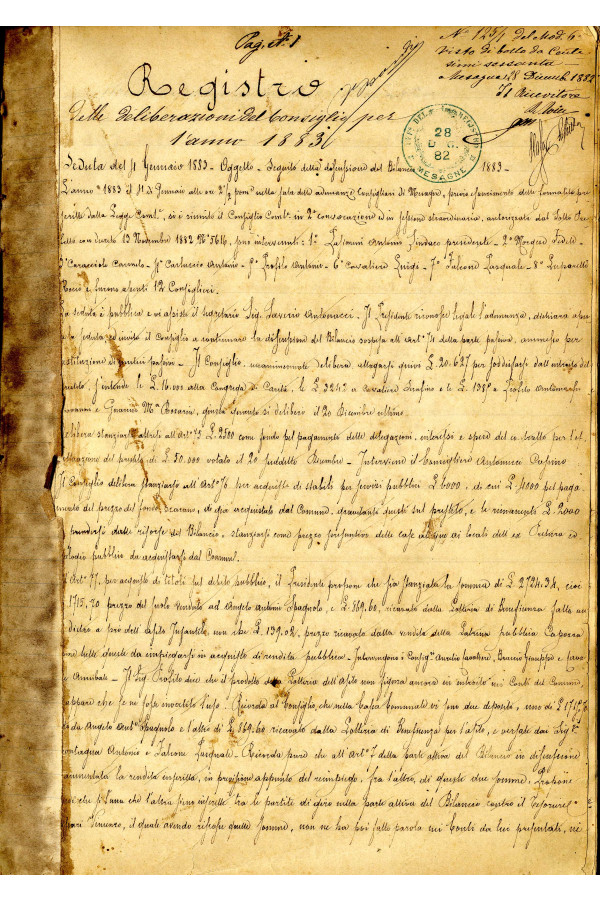 Pag. N. 1
N. 125/1 del Mod. 6
Visto di bollo da Cente
simi sessanta
Mesagne 28 Dicemb. 1882
Il Ricevitore
Registro
delle deliberazioni del Consiglio per
l'anno 1883
28
82
MESAGNE
Seduta del Gennaio 1883 - Oggetto - Seguito della discussione del Bilancio 1883 -
L'anno 1883 il di Gennaio alle ore 2 1/2 pom. nella sala delle adunanze Consigliari di Mesagne, previo esaurimento delle formalità pre
scritte dalla Legge Com.le, si è riunito il Consiglio Com.le in 2a convocazione ed in sessione straordinaria, autorizzata dal Sotto Pre
fetto con decreto 13 Novembre 1882 N. 5616, sono intervenuti: 1° Antonio Sindaco presidente - 2°
3° Caracciolo Carmelo - 4° Carluccio Antonio - 5° Profilo Antonio - 6° Cavaliere Luigi - 7° Falcone Pasquale - 8°
Rocco e furono assenti 12 Consiglieri.
La seduta è pubblica e vi assiste il Segretario Sig. Saverio Antonucci - Il Presidente riconosce legale l'adunanza, dichiara aper
ta la seduta ed invita il Consiglio a continuare la discussione del Bilancio sospesa all'Art. 71 della parte passiva, ammesso per
estinzione di passivi - Il Consiglio unanimemente delibera allogarsi L. 20.627 per soddisfarsi dall'introito del
prestito, s'intende le L. 16.000 alla Congrega di Carità, le L. 3242 a Cavaliere Serafino e le L. 1385 a Profilo
Giovanni e M.a Rosaria, giusta quanto si deliberò il 20 Dicembre ultimo.
Delibera stanziarsi altresì all'Art. L. 2500 come fondo pel pagamento delle delegazioni, interessi e spese del contratto per l'at
tuazione del prestito di L. 50.000 votato il 20 suddetto Dicembre - Interviene il Consigliere Antonucci
Il Consiglio delibera stanziarsi all'Art. 76 per acquisto di stabili per servizi pubblici L. 6000, di cui L. 4000 pel paga
mento del prezzo del fondo, di già acquistato dal Comune, gravitante questi sul prestito, e le rimanenti L. 2000
prendersi dalle risorse del Bilancio, stanziarsi come prezzo presuntivo delle case ai locali dell'ex Pretura ed
orologio pubblico da acquistarsi dal Comune.
All'Art. 77, per acquisto di titoli sul debito pubblico, il Presidente propone che sia stanziata la somma di L. 2724.34, cioè
1715,70 prezzo del suolo venduto ad Angelo Antonio Spagnolo, e L. 869.60, ricavato dalla Lotteria di Beneficenza fatta
dietro a prò dell'asilo Infantile, non che L. 139.02, prezzo ricavato dalla vendita della pubblica
da impiegarsi in acquisto di rendita pubblica - Interrogano i Consig.ri Aurelio Cavaliere, Giuseppe e
Annibale - Il Sig. Profilo dice che il prodotto della Lotteria dell'asilo non figura ancora in introito nei Conti del Comune
sappare che se ne fosse invertito l'uso. Ricorda al Consiglio che nella Cassa Comunale vi sono due depositi, uno di L. 1715.70
da Angelo Ant. Spagnolo e l'altro di L. 869.60 ricavato dalla Lotteria di Beneficenza per l'asilo, e versate dai Sig.ri
Antonio e Falcone Pasquale - Ricorda pure che all'Art. 7 della parte attiva del Bilancio in discussione
aumentata la rendita inscritta, in previsione appunto del reimpiego, fra l'altro, di queste due somme. Propone
che sì l'una che l'altra siano inserite tra le partite di giro nella parte attiva del Bilancio contro il Tesoriere
Vincenzo, il quale avendo riscosso quelle somme, non ne ha poi fatto parola nei Conti da lui presentati, nè